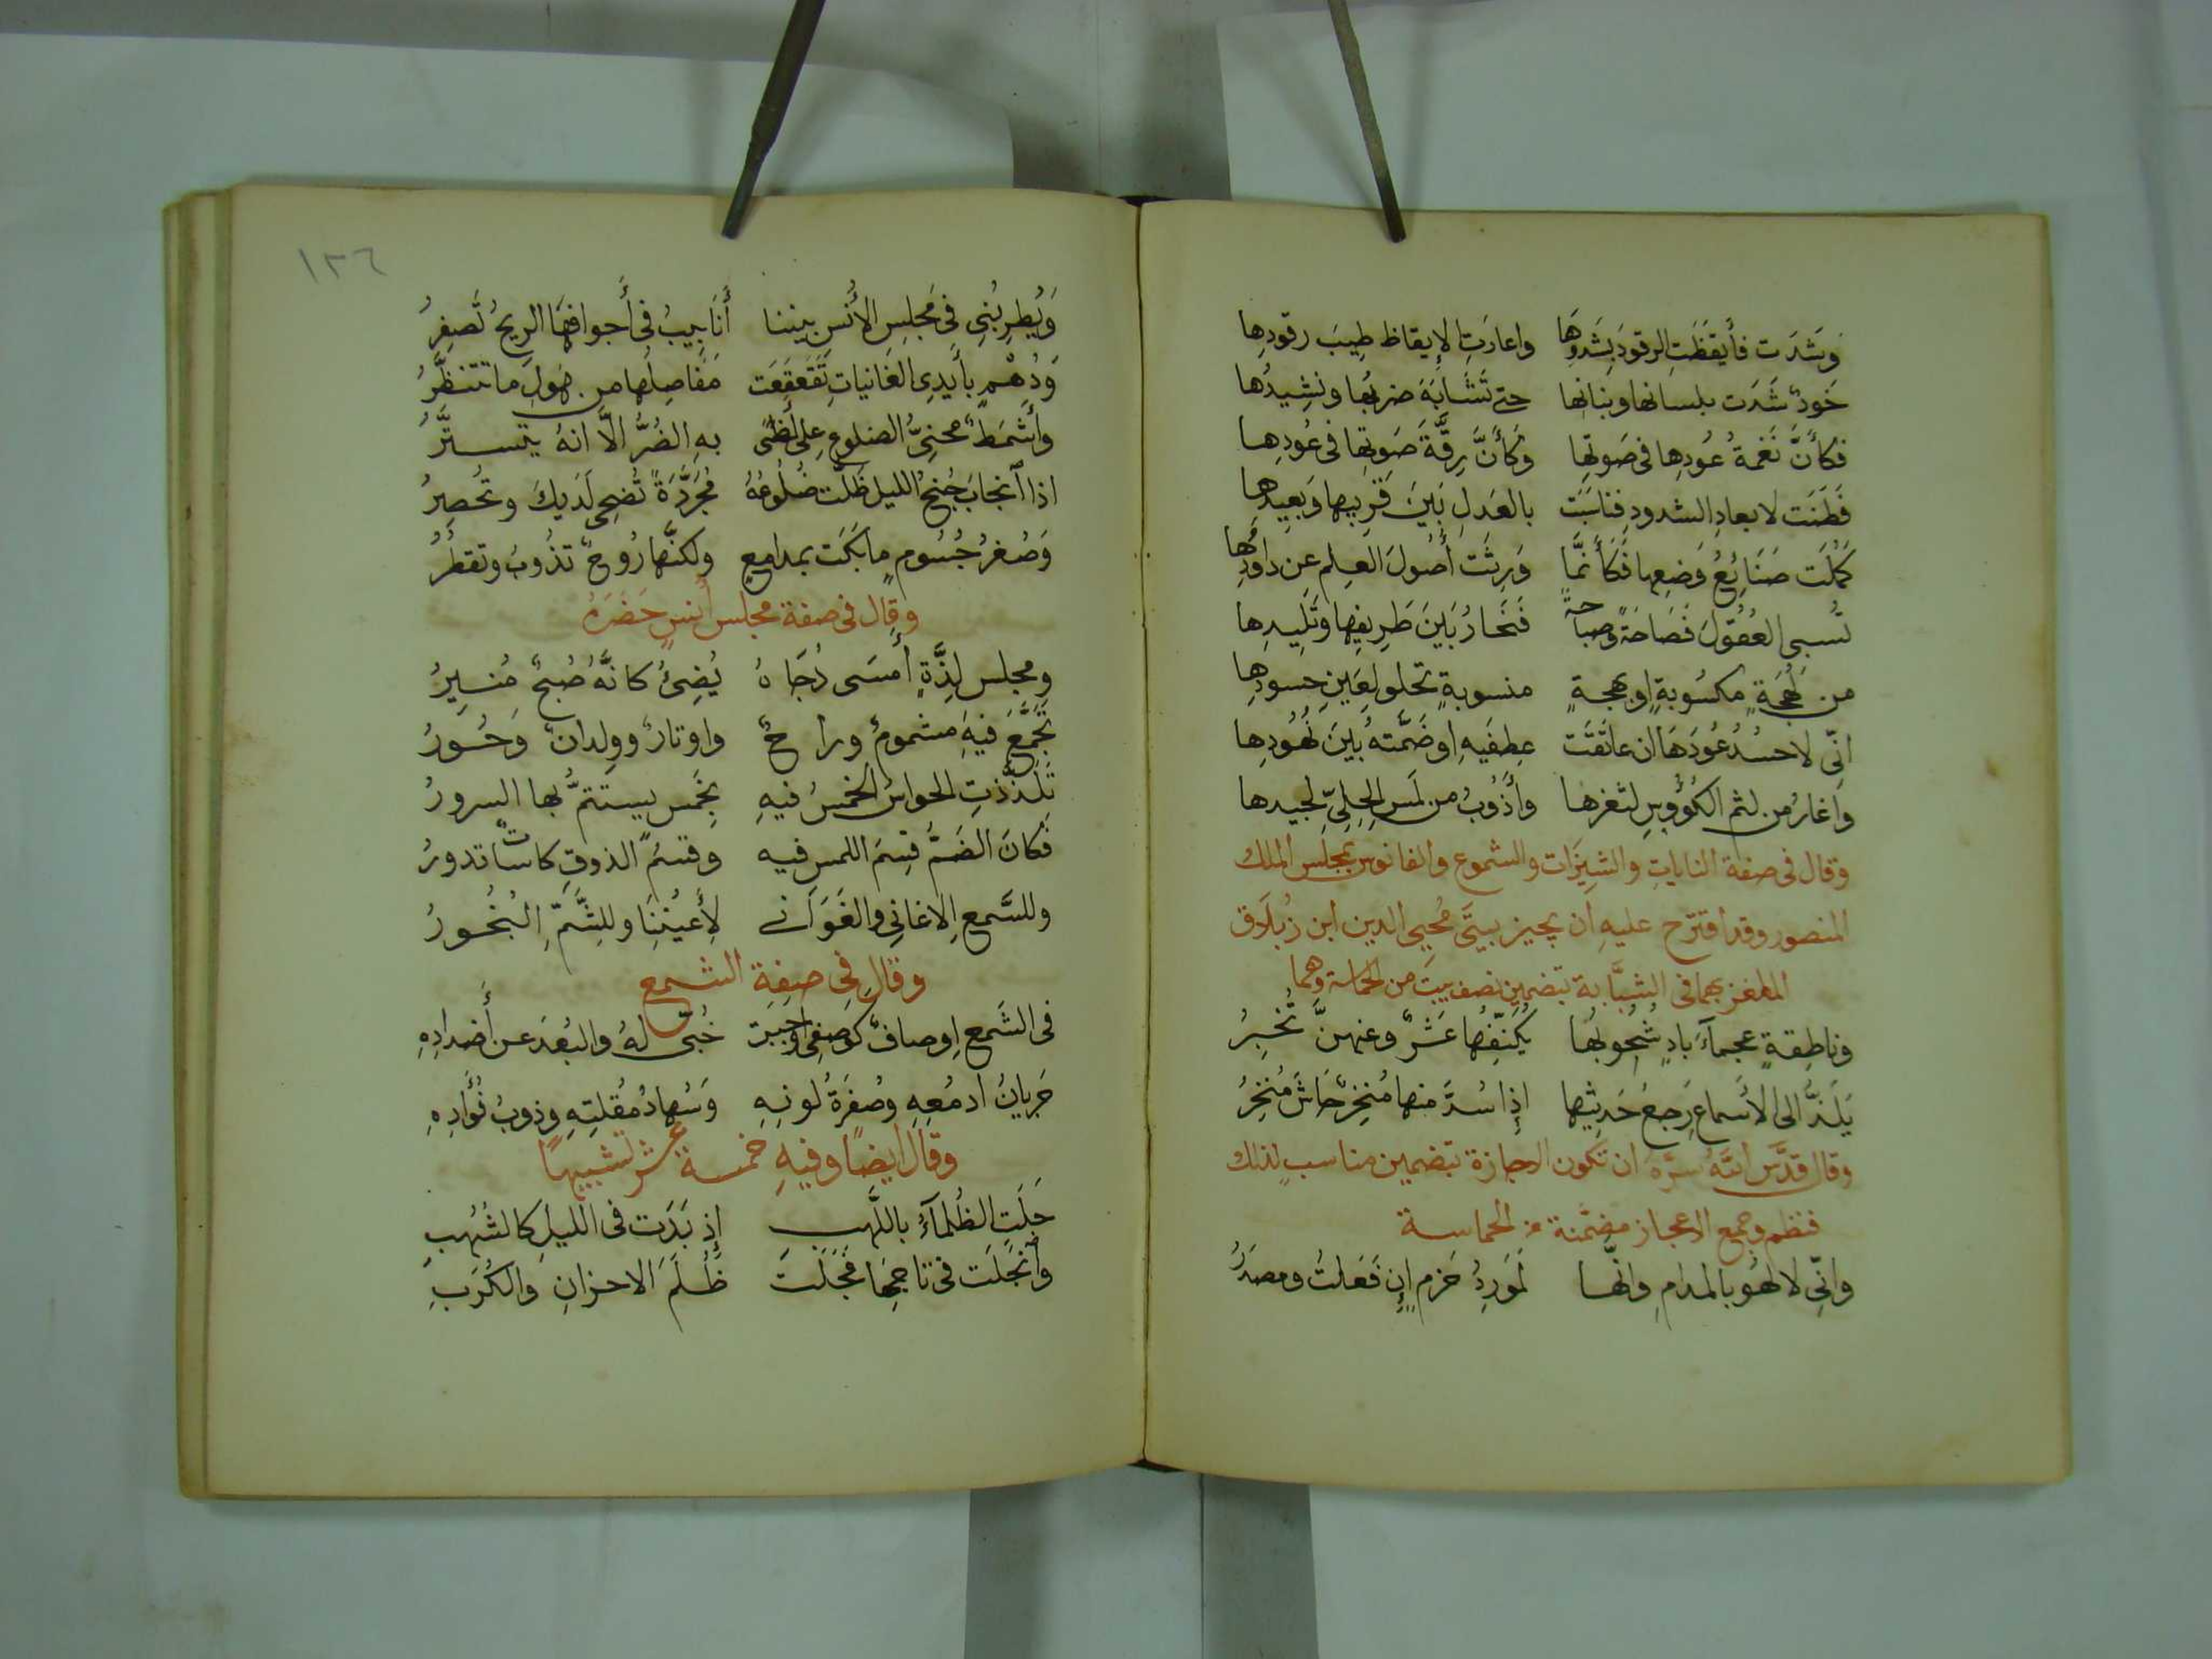 وَشَدَت فأَيقَظَتِ الرقودَ بِشَدوِهَا واعارَتِ الإيقاظ طِيبَ رقودِها
خَودٌ شَدَت بلسانها وبنانها حتى تَشَابَهَ ضربُها ونشِيدُها
فكأَنَّ نَغمةُ عُودِها فى صَوتِها وكَأَنَّ رِقَّةَ صَوتِها فى عُودِها
فَطَنَت لابعادِ الشدودِ فناسَبَت بالعَدلِ بَينَ قَرِيبِها وَبَعِيدِها
كَمُلَت صَنَائِعُ وَضعِها فَكَأَنَّمَا وَرِثَت أُصُولَ العِلمِ عن داوُدِها
تُسبى العُقُولَ فَصَاحَةً وصَباحةً فَتَحَارُ بَينَ طَرِيفِها وتَلِيدِها
من لَهجَةٍ مكسُوبةٍ اوبهجةٍ منسوبةٍ تحلو لعَينِ حسودِها
انّى لاحسُدُ عُودَهَا ان عانَقَت عِطفَيهِ او ضَمَّتهُ بَينَ نُهُودِها
واَغارُ من لثمِ الكُؤُوسِ لثغرها وأَذُوبُ من لَمسِ الحِلِىّ لجيدها
وقال فى صفة الناياتِ والشِيزَات والشموع والفانوس بمجلس الملك
المنصور وقد اقترح عليهِ ان يجيز بيتَى مُحيِى الدين ابن زُبلاق
الملغز بهما فى الشبَّابة بتضمين نصف بيت من الحماسة وهما
وناطِقةٍ عجمآءَ بادٍ شُحُوبُها يُكَنِّفُها عَشرٌ وعنهنَّ تُخبِرُ
يَلَذُّ الى الأَسماعِ رَجعُ حَدِيثِها إذا سُدَّ منها مُنخِرٌ جَاشَ مُنخِرُ
وقال قدَّسَ اللهُ سرَّهُ ان تكون الاجازة بتضمين مناسبٍ لذلك
فنظم وجميع الاعجاز مضمَّنة من الحماسة
وانِّى لالهُو بالمدامِ وانَّها لمَورِدُ حَزمٍ إن فَعَلتُ ومصدَرُ
١٣٦
وَيُطرِبُنِى فِى مَجلِسِ الأُنسِ بيننا أَنَابِيبُ فى أَجوافِهَا الريحُ تَصفِرُ
وَدُهْمٍ بأَيدِى الغَانيَاتِ تَقَعقَعَت مَفَاصِلُها من هَولِ ما تتنظَّرُ
وأَشمَطُ محنِىُّ الضلوعِ على لَظًى بهِ الضُرُّ الَّا انهُ يتستَّرُ
اذا اَنجابَ جُنحُ الليلِ ظَلَّت ضُلُوعُهُ مُجَرَّدَةً تُضحِى لَدَيكَ وتُخصِرُ
وَصُفرُ جُسُومٍ مابَكَت بمدامعٍ ولكنَّها رُوحٌ تذُوبُ وتقطُرُ
وقال فى صفة مجلس أُنسٍ حَضَرَهُ
ومجلس لذَّةٍ أَمسَى دُجَاهُ يُضِئُ كانَّهُ صُبحٌ مُنِيرُ
تَجَمَّعَ فيهِ مشمومٌ وراحٌ واوتارٌ وولدانٌ وَحُورُ
تَلَذَّذتِ الحواسُ الخمسُ فيهِ بِخَمسٍ يستتمُّ بها السرورُ
فَكَانَ الضَمُّ قِسمَ اللمسِ فيهِ وقسمُ الذوقِ كاساتٌ تدورُ
وللسَّمعِ الاغانِى والغَوَانِى لِأَعيُنِنَا وللشَّمِّ البُخُورُ
وقال فِى صِفِة الشمع
فى الشَمعِ اوصافٌ كوَصفِى اوجَبت حُبّى لهُ والبُعدَ عن أَضدادِهِ
جَريانُ ادمُعِهِ وصُفرَةُ لونِهِ وَسُهادُ مُقلتِهِ وذوبُ فُؤَادِهِ
وقال ايضًا وفيهِ خمسة عشر تشبيهًا
جَلَتِ الظُلمآءَ باللَّهبِ إذ بَدَت فى الليلِ كالشُهُبِ
وأَنجَلَت فى تاجِهَا فَجَلَت ظُلَمَ الاحزانِ والكُرَبِ